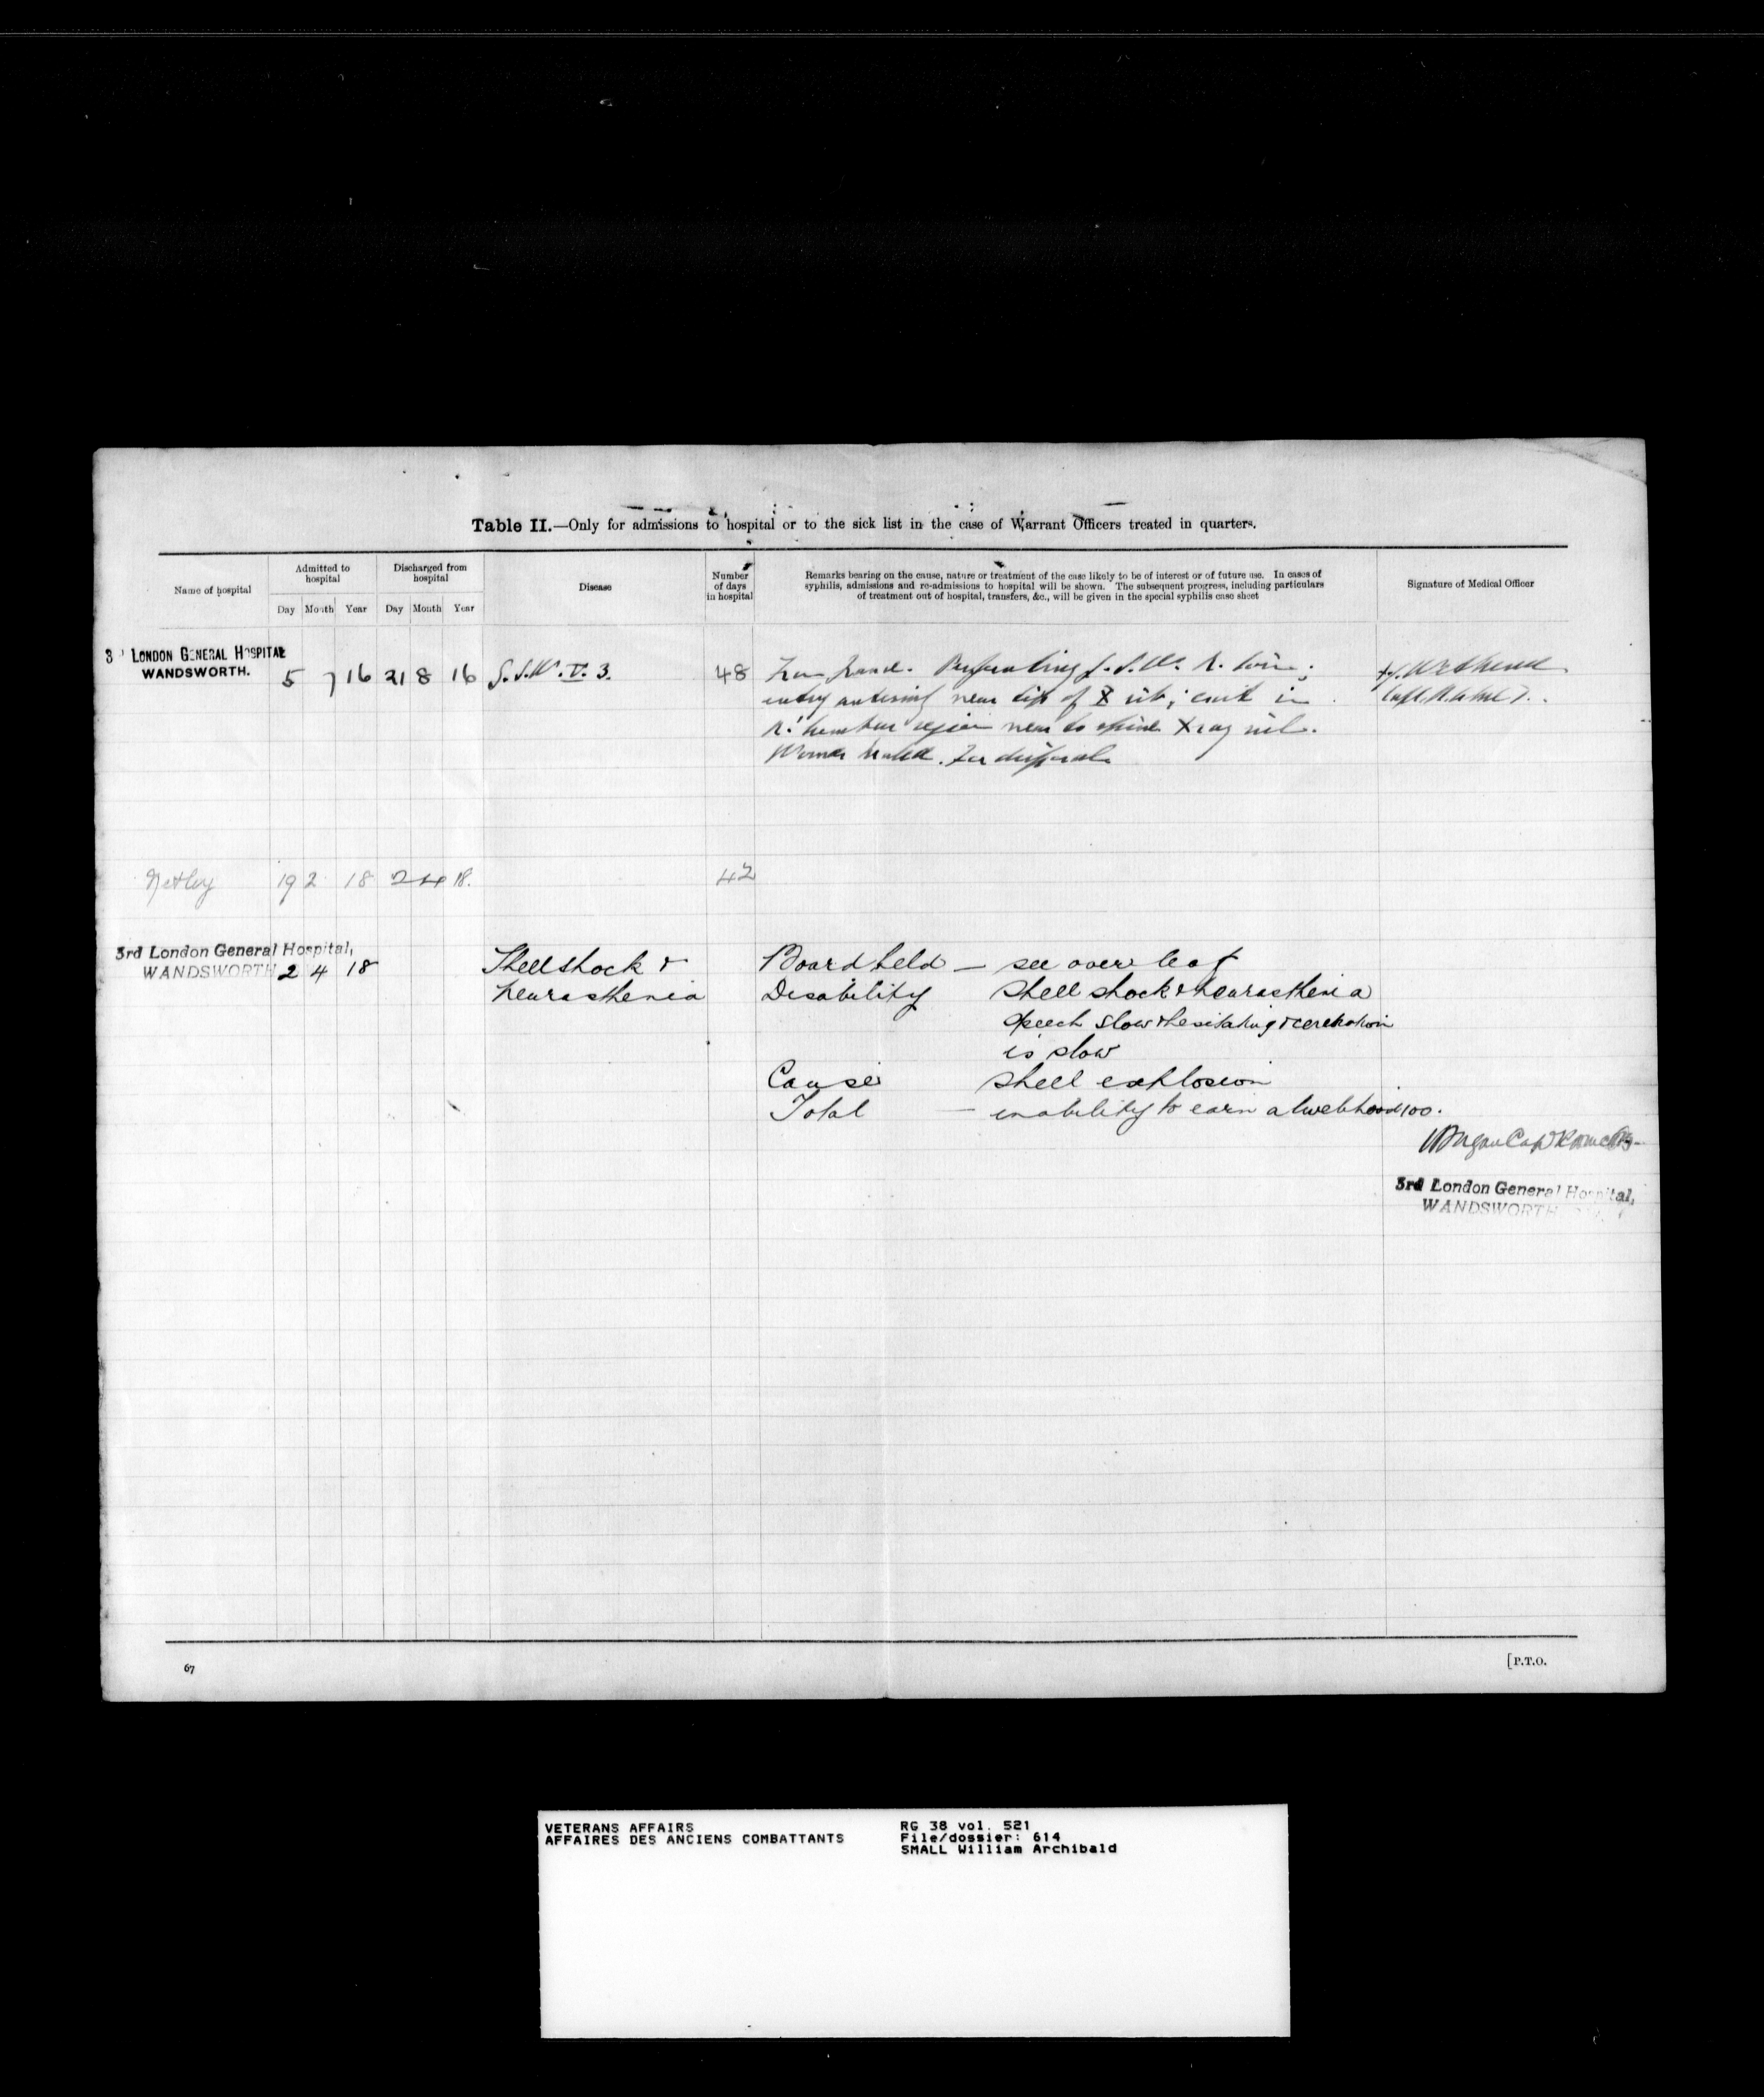 Table II.—Only for admissions to hospital or to the sick list in the case of Warrant Officers treated in quarters.
Name of hospital
Admitted to hospital
Discharged from hospital
Day Month Year Day Month Year
Disease
Number of days in hospital
Remarks bearing on the cause, nature or treatment of the case likely to be of interest or of future use. In cases of
syphilis, admissions and re-admissions to hospital will be shown. The subsequent progress, including particulars
of treatment out of hospital, transfers, &c., will be given in the special syphilis case sheet
Signature of Medical Officer
3 LONDON GENERAL HOSPITAL
WANDSWORTH.
5 7 16 21 8 16 S.S.W. V. 3. 48 Perforating S.S.W. R.
entry near tip of X rib; exit in
R. lumbar region near to spine X ray nil.
healed. For disposal.
Netley 19 2 18 2 4 18. 42
3rd London General Hospital,
WANDSWORTH 2 4 18
Shellshock &
neurasthenia
Board held — see over leaf
Disability Shell shock & neurasthenia
Speech slow & hesitating & cerebration
is slow
Cause shell explosion
Total — inability to earn a livelihood 100.
3rd London General Hospital,
WANDSWORTH
67
[P.T.O.
VETERANS AFFAIRS
AFFAIRES DES ANCIENS COMBATTANTS
RG 38 vol. 521
File/dossier: 614
SMALL William Archibald